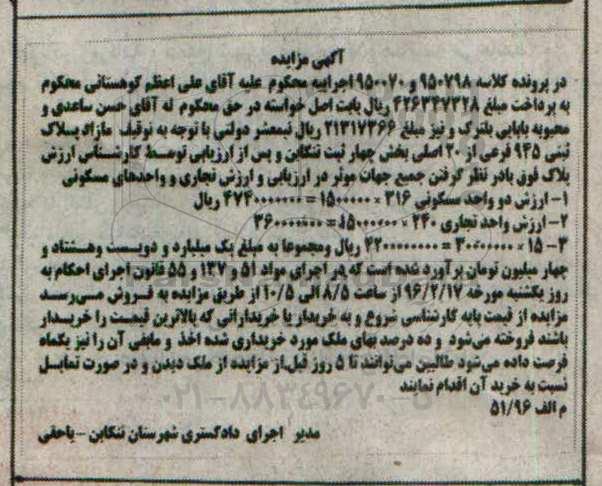 آگهی مزایده
در پرونده کلاسه ۹۵۰۷۹۸ و ۹۵۰۰۷۰ اجراییه محکوم علیه آقای علی اعظم کوهستانی محکوم
به پرداخت مبلغ ۴۲۶۳۴۷۳۲۸ ریال بابت اصل خواسته در حق محکوم له آقای حسن ساعدی و
محبوبه بابایی بلترک و نیز مبلغ ۲۱۳۱۷۳۶۶ ریال نیمعشر دولتی با توجه به توقیف مازاد پلاک
ثبتی ۹۴۵ فرعی از ۲۰ اصلی بخش چهار ثبت تنکابن و پس از ارزیابی توسط کارشناس ارزش
پلاک فوق بادر نظر گرفتن جمیع جهات موثر در ارزیابی و ارزش تجاری و واحدهای مسکونی
۱- ارزش دو واحد مسکونی ۳۱۶ × ۱۵۰۰۰۰۰۰ = ۴۷۴۰۰۰۰۰۰۰ ریال
۲- ارزش واحد تجاری ۲۴۰ × ۱۵۰۰۰۰۰۰ = ۳۶۰۰۰۰۰۰۰۰
۳- ۱۵ × ۳۰۰۰۰۰۰۰۰ = ۴۲۰۰۰۰۰۰۰۰ ریال ومجموعا به مبلغ یک میلیارد و دویست وهشتاد و
چهار میلیون تومان برآورد شده است که در اجرای مواد ۵۱ و ۱۳۷ و ۵۵ قانون اجرای احکام به
روز یکشنبه مورخه ۹۶/۲/۱۷ از ساعت ۸/۵ الی ۱۰/۵ از طریق مزایده به فروش می‌رسد
مزایده از قیمت پایه کارشناسی شروع و به خریدار یا خریدارانی که بالاترین قیمت را خریدار
باشند فروخته می‌شود و ده درصد بهای ملک مورد خریداری شده اخذ و مابقی آن را نیز یکماه
فرصت داده می‌شود طالبین می‌توانند تا ۵ روز قبل از مزایده از ملک دیدن و در صورت تمایل
نسبت به خرید آن اقدام نمایند
م الف ۵۱/۹۶
مدیر اجرای دادگستری شهرستان تنکابن - یاحقی
۰۲۱-۸۸۳۴۹۶۷۰-۵